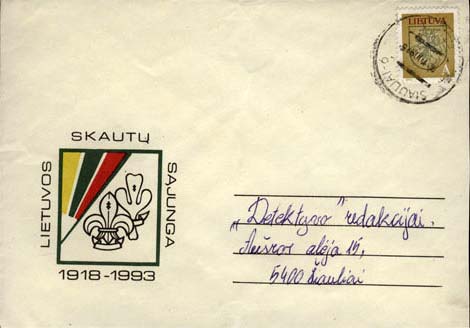 LIETUVA
A
ŠIAULIAI-9
LIETUVOS
SKAUTŲ
SĄJUNGA
1918-1993
„Detektyvo" redakcijai.
Aušros alėja 15,
5400 Šiauliai